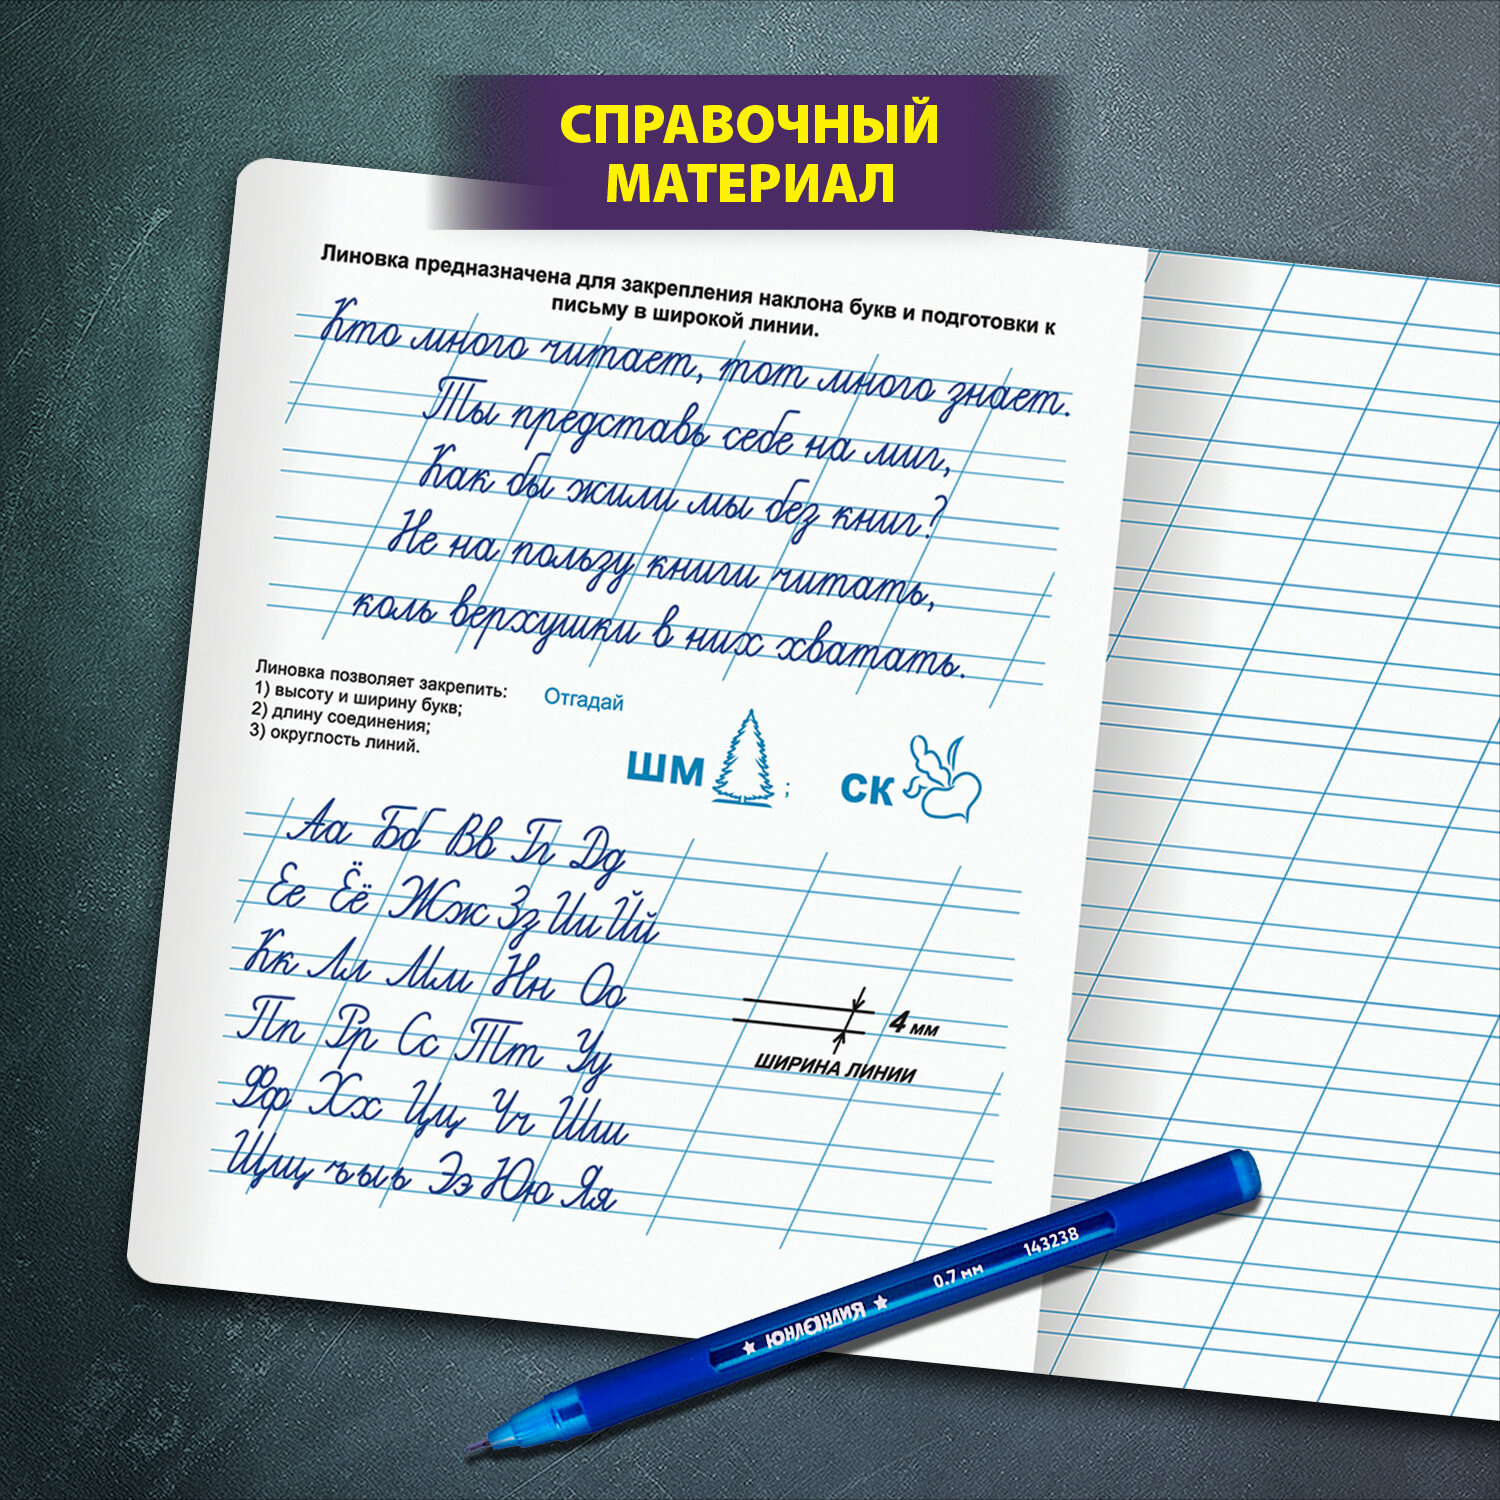 СПРАВОЧНЫЙ
МАТЕРИАЛ
Линовка предназначена для закрепления наклона букв и подготовки к
письму в широкой линии.
Кто много читает, тот много знает.
Ты представь себе на миг,
Как бы жили мы без книг?
Не на пользу книги читать,
коль верхушки в них хватать.
Линовка позволяет закрепить:
1) высоту и ширину букв;
2) длину соединения;
3) округлость линий.
Отгадай
шм ;
ск
Аа Бб Вв Гг Дд
Ее Ёё Жж Зз Ии Йй
Кк Лл Мм Нн Оо
Пп Рр Сс Тт Уу
Фф Хх Цц Чч Шш
Щщ ъыь Ээ Юю Яя
4 мм
ШИРИНА ЛИНИИ
ЮНЛАНДИЯ 0.7 мм 143238